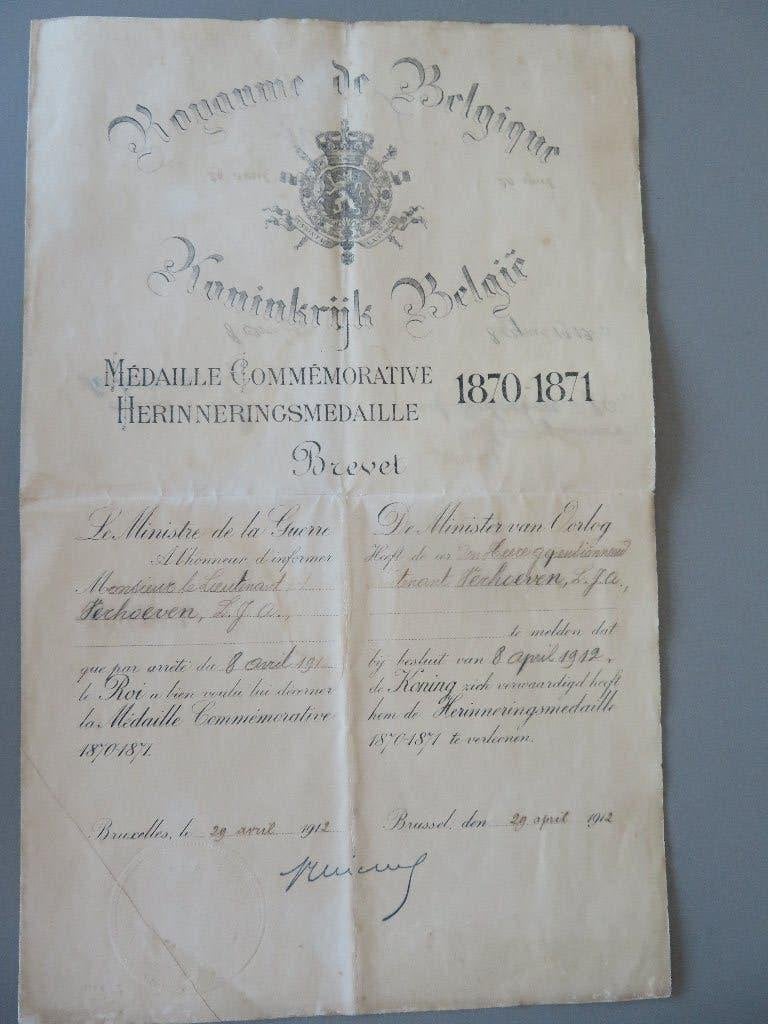 Royaume de Belgique
Koninkrijk België
MÉDAILLE COMMÉMORATIVE
HERINNERINGSMEDAILLE
1870-1871
Brevet
Le Ministre de la Guerre
A l'honneur d'informer
Monsieur le Lieutenant
Verhoeven, L. J. A.,
que par arrêté du 8 avril 191
le Roi a bien voulu lui décerner
la Médaille Commémorative
1870-1871.
Bruxelles, le 29 avril 1912
De Minister van Oorlog
Heeft de eer Den Heer
Verhoeven, L. J. A.,
te melden dat
bij besluit van 8 april 1912,
de Koning zich verwaardigd heeft
hem de Herinneringsmedaille
1870-1871 te verleenen.
Brussel, den 29 april 1912